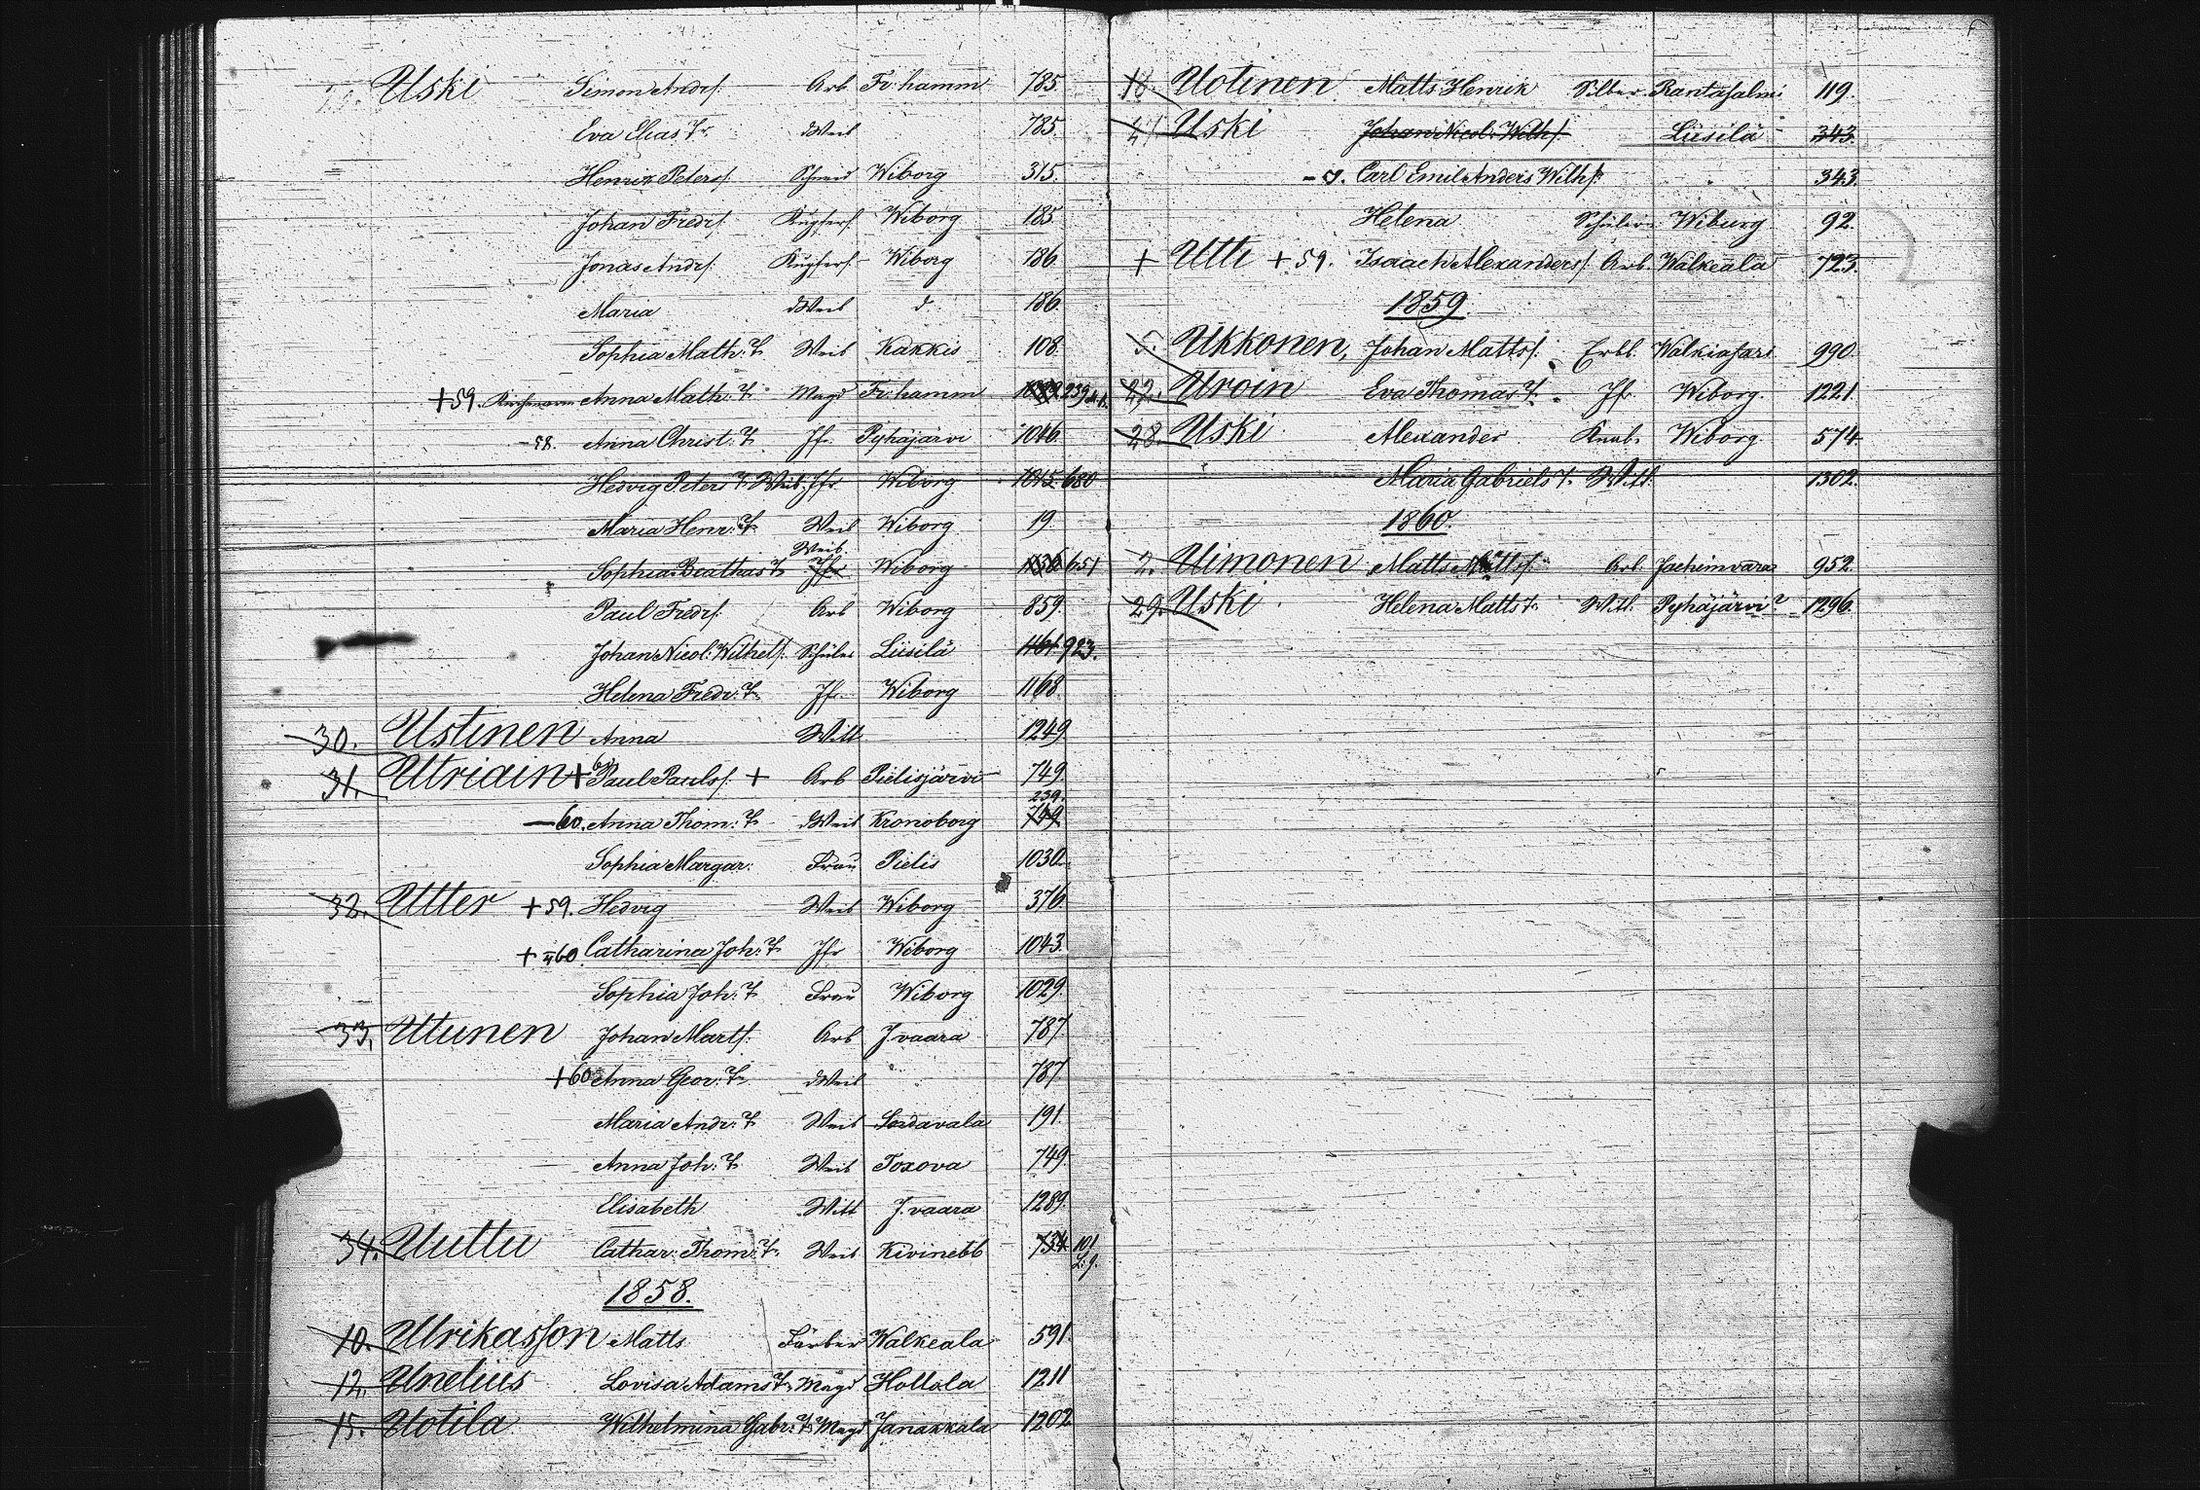 29. Uski Simon Andrs. Arb Fr:hamm 785.
Eva Elias T. dWeib 785.
Henrik Peters. Schmid Wiborg 315.
Johan Fredrs. Wiborg 185.
Jonas Andrs. Wiborg 186.
Maria dWeib d: 186.
Sophia Math: T. Weib Kakkis 108.
+59. Anna Math: T. Magd Fr:hamm 239
-58. Anna Christ: T. Jfr Pyhäjärvi 1046.
Hedvig Peters T. Weib: Jfr Wiborg 1045. 680
Maria Henr: T. Weib Wiborg 19.
Weib.
Sophia Beathas T. Jfr Wiborg 651
Paul Fredrs. Arb Wiborg 859.
Johan Nicol: Wilhels. Schüler Liisilä 1161. 923.
Helena Fredr: T. Jfr Wiborg 1168.
30. Ustinen Anna Witt 1249
31. Utriain + Paul Pauls. + Arb Pielisjärvi 749.
239.
-60. Anna Thom: T. dWeib Kronoborg 749
Sophia Margar: Frau Pielis 1030.
32. Utter +59. Hedvig Weib Wiborg 376.
+ 60. Catharina Joh: T. Jfr Wiborg 1043.
Sophia Joh: T. Frau Wiborg 1029.
33. Utunen Johan Marts. Arb J. vaara 787.
+60 Anna Geor: T. dWeib 787
Maria Andr: T. Weib Sordavala 191.
Anna Joh: T. Weib Toxova 749.
Elisabeth Witt J. vaara 1289.
34. Uuttu Cathar: Thom: T. Weib Kivinebb 734 101
1858.
10. Ulrikasson Matts Färber Walkeala 591.
12. Unelius Lovisa Adams T. Magd Hollola 1211
15. Uotila Wilhelmina Gabr: T. Magd Janakkala 1202
18. Uotinen Matts Henrik Silber. Rantasalmi 119.
27. Uski Johan Nicol: Wilhs. Liisilä 343.
Carl Emil Anders Wilhs. 343.
Helena Schüler: Wiburg 92.
+ Utti +59. Isaach Alexanders. Arb. Walkeala 723.
1859.
5. Ukkonen, Johan Matts. Erbl. Walkiasari 990.
22. Uroin Eva Thomas T. Jfr Wiborg. 1221.
28. Uski Alexander Knab. Wiborg. 574.
Maria Gabriels T. Witt. 1302.
1860.
2. Uimonen Matts Matts. Arb. Jachimvara 952.
29. Uski Helena Matts T. Witt. Pyhäjärvi? 1296.